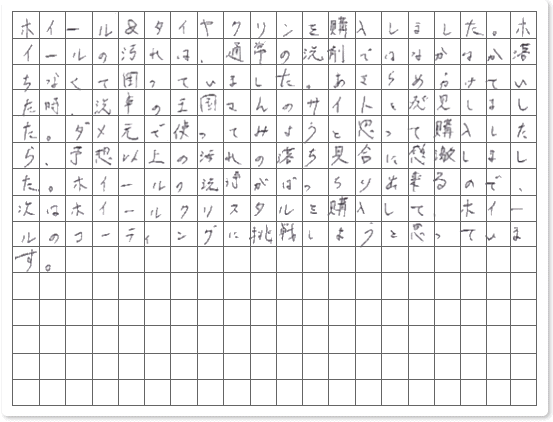 ホイール&タイヤクリンを購入しました。ホ
イールの汚れは、通常の洗剤ではなかなか落
ちなくて困っていました。あきらめかけてい
た時、洗車の王国さんのサイトを発見しまし
た。ダメ元で使ってみようと思って購入した
ら、予想以上の汚れの落ち具合に感激しまし
た。ホイールの洗浄がばっちり出来るので、
次はホイールクリスタルを購入して、ホイー
ルのコーティングに挑戦しようと思っていま
す。